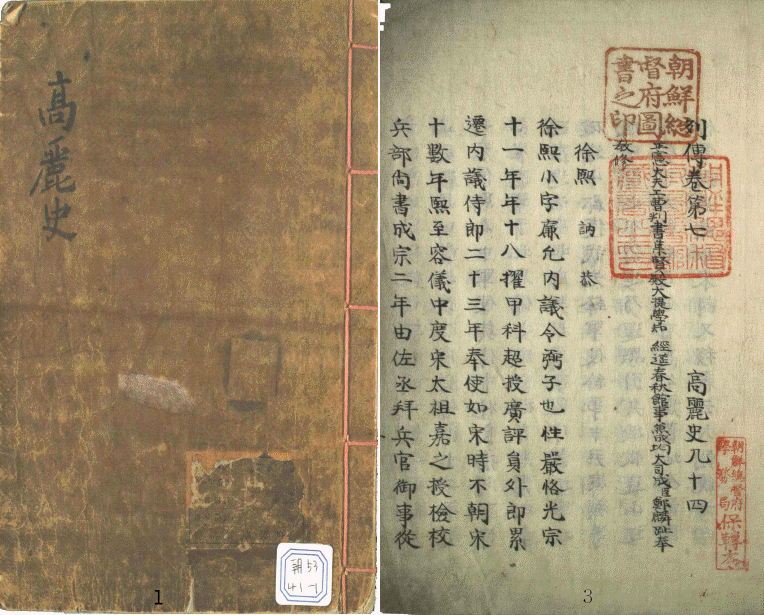 高麗史
朝53
41-1
1
朝鮮総
督府圖
書之印
列傳卷第七 高麗史九十四
正憲大夫工曹判書集賢殿大提學知 經筵春秋館事兼成均大司成臣鄭麟趾奉
敎修
徐熙 訥 恭
徐熙小字廉允内議令弼子也性嚴恪光宗
十一年年十八擢甲科超授廣評員外郎累
遷内議侍郎二十三年奉使如宋時不朝宋
十數年熙至容儀中度宋太祖嘉之授檢校
兵部尚書成宗二年由佐丞拜兵官御事從
朝鮮總督府
3